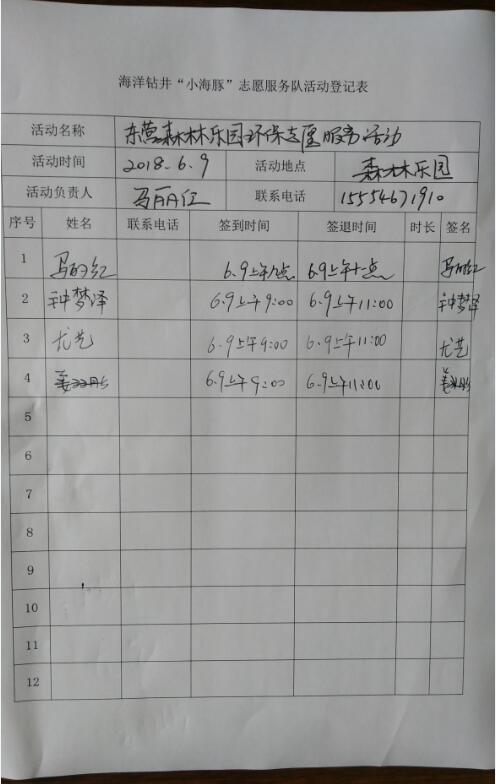 海洋钻井“小海豚”志愿服务队活动登记表
活动名称 东营森林乐园环保志愿服务活动
活动时间 2018.6.9 活动地点 森林乐园
活动负责人 马丽红 联系电话 15554671910
序号 姓名 联系电话 签到时间 签退时间 时长 签名
1 马丽红 6.9上午九点 6.9上午十一点 马丽红
2 钟梦泽 6.9上午9:00 6.9上午11:00 钟梦泽
3 尤艺 6.9上午9:00 6.9上午11:00 尤艺
4 6.9上午9:00 6.9上午11:00
5
6
7
8
9
10
11
12